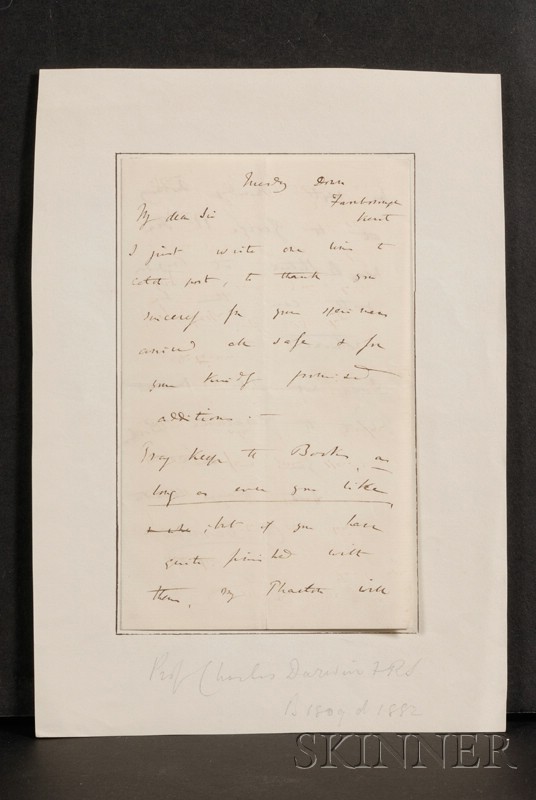 Tuesday Down
Farnborough
My dear Sir Kent
I just write one line to
catch post, to thank you
sincerely for your specimens
arrived all safe & for
your kindly promised
additions. —
Pray keep the Books, as
long as ever you like
; but if you have
quite finished with
them, my Phaeton will
Prof Charles Darwin F.R.S.
b 1809 d 1882
SKINNER